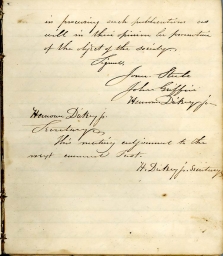 in procuring such publications as
will in their opinion be promotive
of the object of the society.
Signed,
John
John Griffin
Harmon Dickey Jr.
Harmon Dickey Jr.
Secretary
This meeting adjourned to the
next
H. Dickey Jr. Secretary